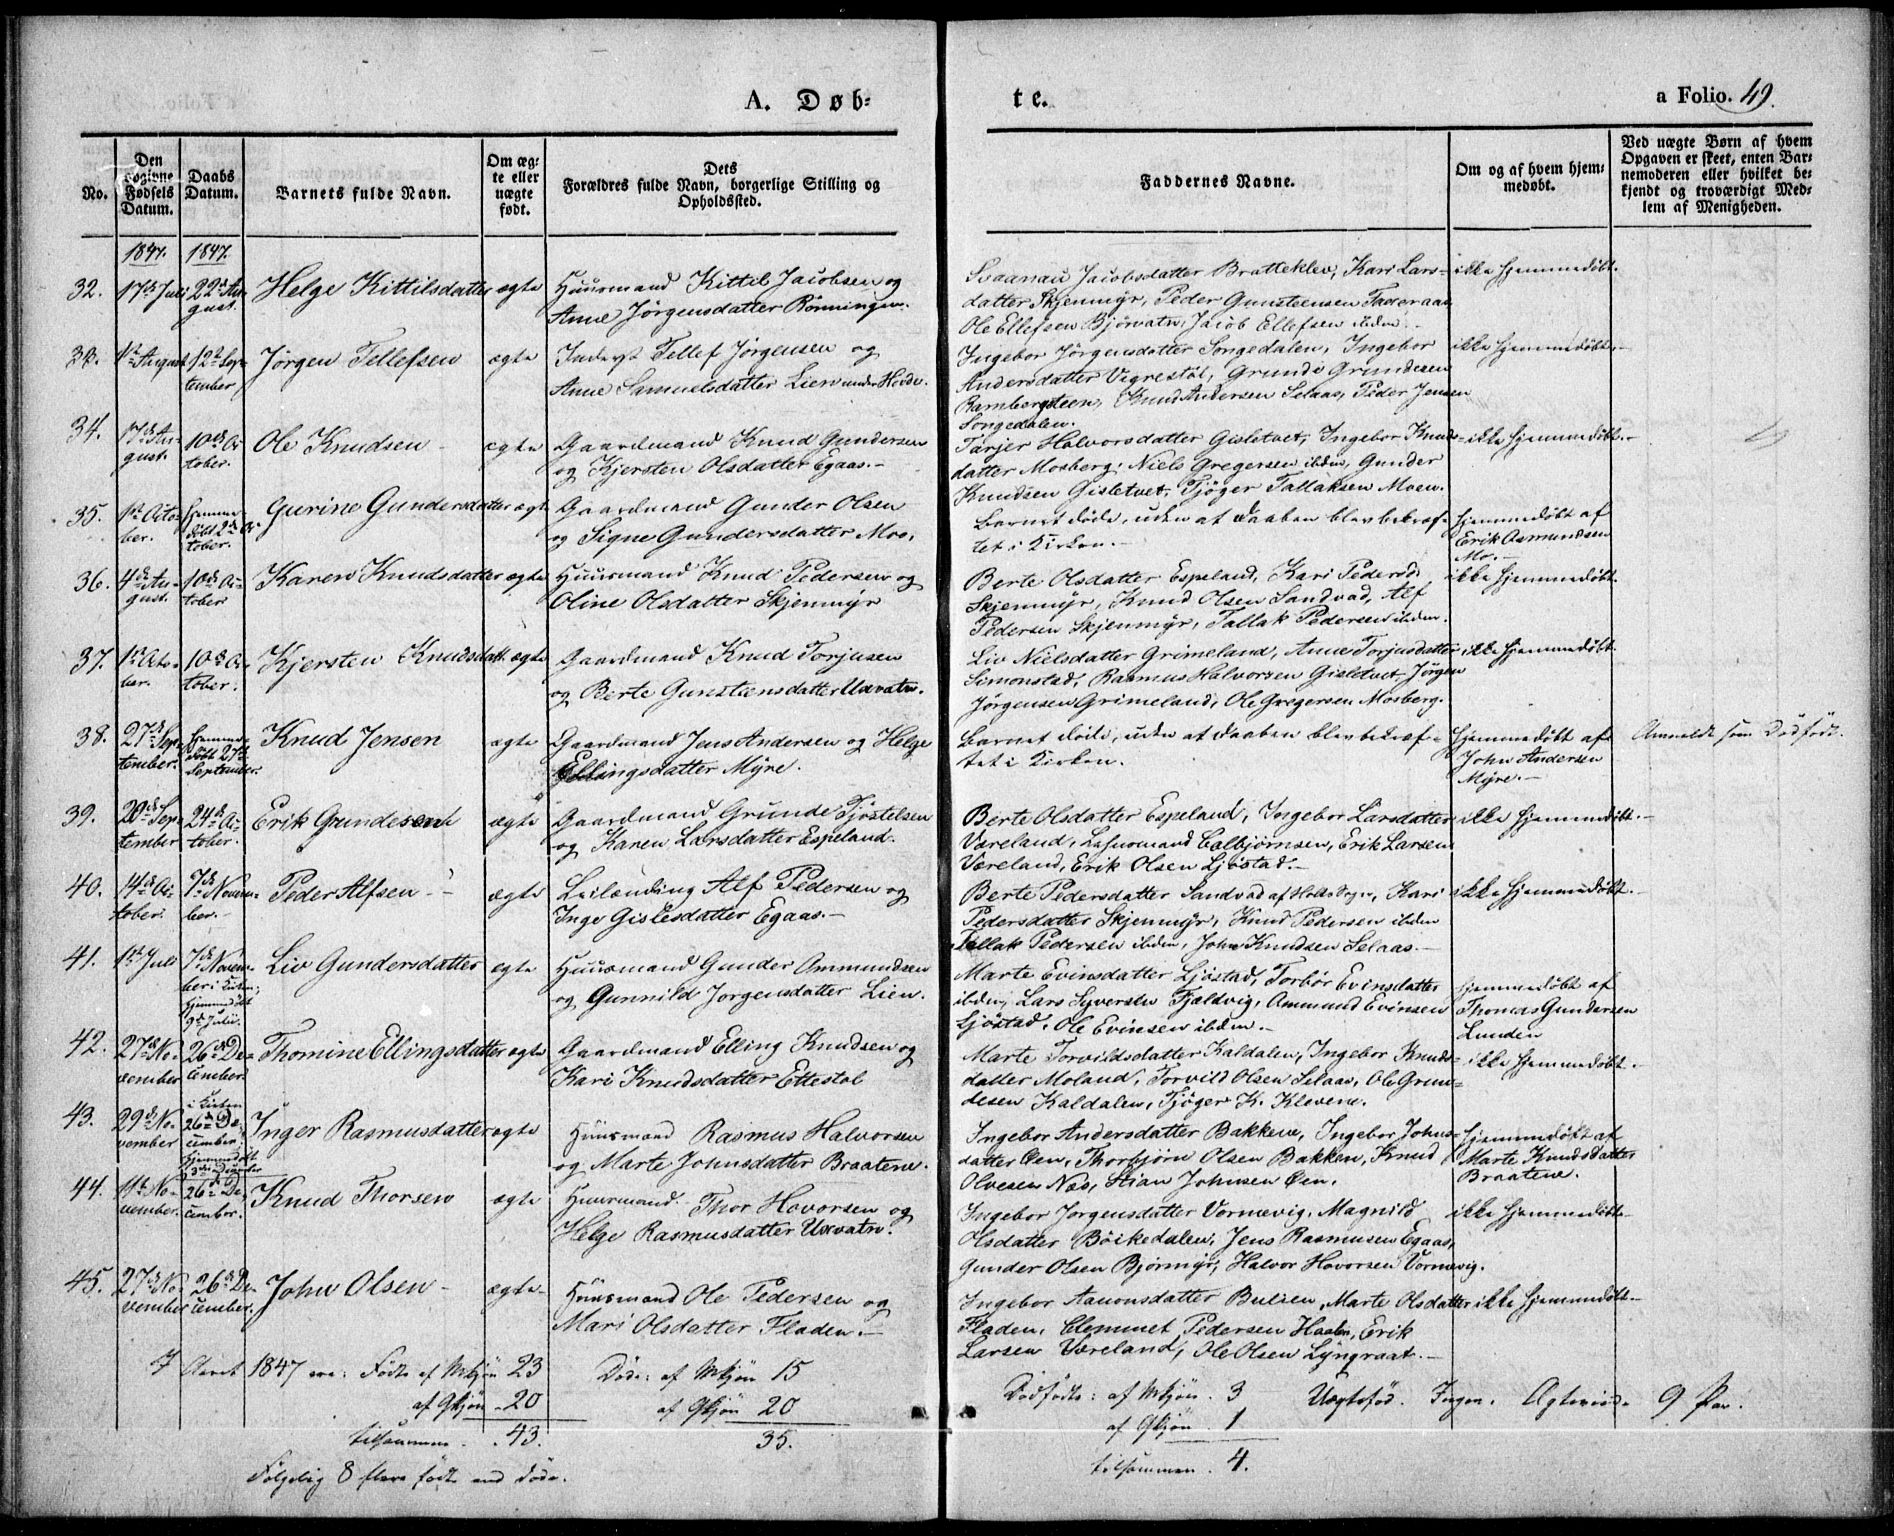 A. Døb=
te.
a Folio. 49.
No.
Den
opgivne
Fødsels
Datum.
Daabs
Datum.
Barnets fulde Navn.
Om æg=
te eller
uægte
født.
Dets
Forældres fulde Navn, borgerlige Stilling og
Opholdssted.
Faddernes Navne.
Om og af hvem hjem=
medøbt.
Ved uægte Børn af hvem
Opgaven er skeet, enten Bar=
nemoderen eller hvilket be=
kjendt og troværdigt Med=
lem af Menigheden.
1847. 1847.
32. 17de Juli 22de Au-
gust. Helge Kittilsdatter ægte Huusmand Kittil Jacobsen og
Anne Jørgensdatter Rønningen.
Jacobsdatter Bratteklev, Kari Lars-
datter Skjenmyr, Peder Gunstensen Taderaas
Ole Ellefsen Bjørvatn, Jacob Ellefsen ibidem.
ikke hjemmedøbt.
33. 1ste August 12te Sep-
tember Jørgen Tellefsen ægte Inderst Tellef Jørgensen og
Anne Samuelsdatter Lien under Hovde.
Ingebor Jørgensdatter Songedalen, Ingebor
Andersdatter Vegrestøl, Grunde Grundesen
Rambergsteen, Knud Andersen Selaas, Peder Jensen
Songedalen.
ikke hjemmedøbt.
34. 17de Au-
gust. 10de Oc-
tober. Ole Knudsen ægte Gaardmand Knud Gundersen
og Kjersten Olsdatter Egaas.
Tarjer Halvorsdatter Gisletvet, Ingebor Knuds-
datter Mosberg, Niels Gregersen ibidem, Gunder
Knudsen Gisletvet, Tjøger Tallaksen Moen.
ikke hjemmedøbt.
35. 1ste Octo-
ber. hjemme-
døbt 2de Oc-
tober. Gurine Gundersdatter ægte Gaardmand Gunder Olsen
og Signe Gundersdatter Moe.
Barnet døde, uden at Daaben blev bekræf-
tet i Kirken.
hjemmedøbt af
Erik Asmundsen
Mo.
36. 4de Au-
gust. 10de Oc-
tober Karen Knudsdatter ægte Huusmand Knud Pedersen og
Oline Olsdatter Skjenmyr
Berte Olsdatter Espeland, Kari Pedersd.
Skjenmyr, Knud Olsen Sandvad, Alf
Pedersen Skjenmyr, Tallak Pedersen ibidem.
ikke hjemmedøbt.
37. 1ste Octo-
ber. 10de Oc-
tober. Kjersten Knudsdatt. ægte Gaardmand Knud Torjusen
og Berte Gunstensdatter Uxvatn.
Liv Nielsdatter Grimeland, Anne Torjusdatter
Simonstad, Rasmus Halvorsen Gisletvet, Jørgen
Jørgensen Grimeland, Ole Gregersen Mosberg.
ikke hjemmedøbt.
38. 27de Sep-
tember. hjemme-
døbt 27de
September. Knud Jensen ægte Gaardmand Jens Andersen og Helge
Ellingsdatter Myre.
Barnet døde, uden at Daaben blev bekræf-
tet i Kirken.
hjemmedøbt af
John Andersen
Myre.
Anmeldt som Dødfødt.
39. 20de Sep-
tember 24de Oc-
tober. Erik Grundesen ægte Gaardmand Grunde Tjøstelsen
og Karen Larsdatter Espeland.
Berte Olsdatter Espeland, Ingebor Larsdatter
Væreland, Lehnsmand Calbjørnsen, Erik Larsen
Væreland, Erik Olsen Ljøstad.
ikke hjemmedøbt.
40. 14de Oc-
tober. 7de Novem-
ber. Peder Alfsen ægte Leilending Alf Pedersen og
Inge Gislesdatter Egaas.
Berte Pedersdatter Sandvad af Holts Sogn, Kari
Pedersdatter Skjenmyr, Knud Pedersen ibidem
Tallak Pedersen ibidem, John Knudsen Selaas.
ikke hjemmedøbt.
41. 1ste Juli 7de Novem-
ber i Kirken;
hjemmedøbt
9de Julii. Liv Gundersdatter ægte Huusmand Gunder Ammundsen
og Gunnild Jørgensdatter Lien.
Marte Evinsdatter Ljøstad, Torbør Evinsdatter
ibidem, Lars Syversen Fjeldvig, Ammund Evinsen
Ljøstad, Ole Evinsen ibidem.
hjemmedøbt af
Thomas Gundersen
Lunden
42. 27de No-
vember 26de De-
cember. Thomine Ellingsdatter ægte Gaardmand Elling Knudsen og
Kari Knudsdatter Ettestøl
Marte Torvildsdatter Kaldalen, Ingebor Knuds-
datter Moland, Torvild Olsen Selaas, Ole Grun-
desen Kaldalen, Tjøger K. Klevene.
ikke hjemmedøbt.
43. 29de No-
vember i Kirken
26de De-
cember;
hjemmedøbt
3die December Inger Rasmusdatter ægte Huusmand Rasmus Halvorsen
og Marte Johnsdatter Braatene.
Ingebor Andersdatter Bakkene, Ingebor Johns-
datter Øen, Thorbjørn Olsen Bakken, Knud
Olvesen Næs, Stian Johnsen Øen.
hjemmedøbt af
Marte Knudsdatter
Braatene.
44. 11te No-
vember. 26de De-
cember. Knud Thorsen ægte Huusmand Thor Hovorsen og
Helge Rasmusdatter Uxvatn.
Ingebor Jørgensdatter Vormevig, Magnild
Olsdatter Bøikedalen, Jens Rasmusen Egaas,
Gunder Olsen Bjørmyr, Halvor Hovorsen Vormevig.
ikke hjemmedøbt.
45. 27de No-
vember 26de De-
cember. John Olsen ægte Huusmand Ole Pedersen og
Mari Olsdatter Fladen.
Ingebor Aanonsdatter Bulien, Marte Olsdatter
Fladen, Clemmet Pedersen Haaten, Erik
Larsen Væreland, Ole Olsen Lyngraat.
ikke hjemmedøbt.
I Aaret 1847 ere: Fødte af Mkjøn 23
af Qkjøn 20
tilsammen 43.
Følgelig 8 flere fødte end døde.
Døde: af Mkjøn 15
af Qkjøn 20
35.
Dødfødte: af Mkjøn. 3
af Qkjøn. 1
tilsammen. 4.
Uægtefød. Ingen. Ægteviede 9 Par.